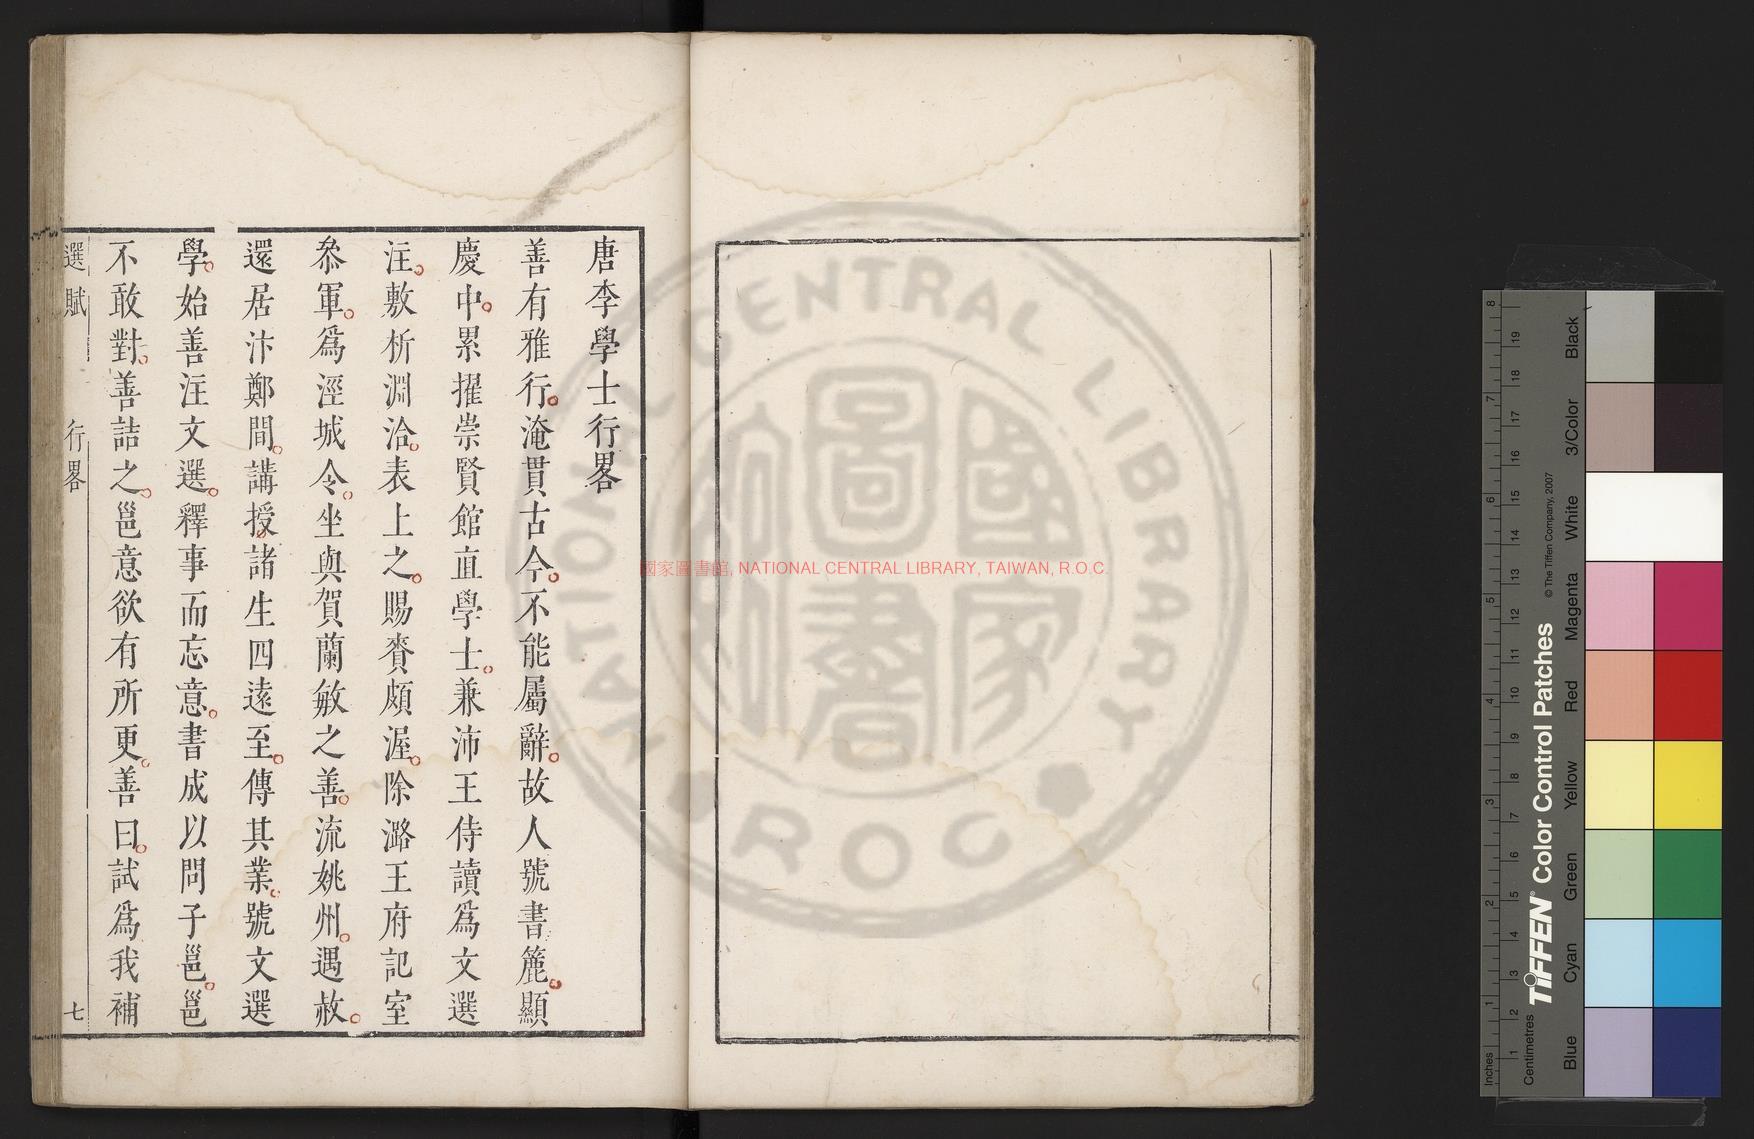 唐李學士行畧
善有雅行淹貫古今不能屬辭故人號書簏顯
慶中累擢崇賢館直學士兼沛王侍讀爲文選
注敷析淵洽表上之賜賚頗渥除潞王府記室
叅軍爲涇城令坐與賀蘭敏之善流姚州遇赦
還居汴鄭間講授諸生四遠至傳其業號文選
學始善注文選釋事而忘意書成以問子邕邕
不敢對善詰之邕意欲有所更善曰試爲我補
選賦 行畧 七
國家圖書館, NATIONAL CENTRAL LIBRARY, TAIWAN, R.O.C.
NATIONAL CENTRAL LIBRARY
ROC
國家圖書館
TIFFEN® Color Control Patches
© The Tiffen Company, 2007
Inches 1 2 3 4 5 6 7 8
Centimetres 1 2 3 4 5 6 7 8 9 10 11 12 13 14 15 16 17 18 19
Blue
Cyan
Green
Yellow
Red
Magenta
White
3/Color
Black